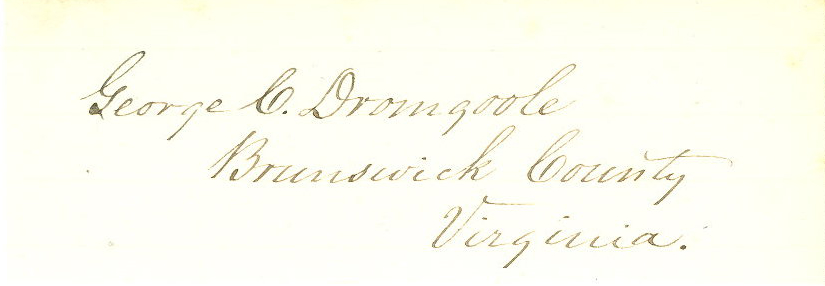 George C. Dromgoole
Brunswick County
Virginia.